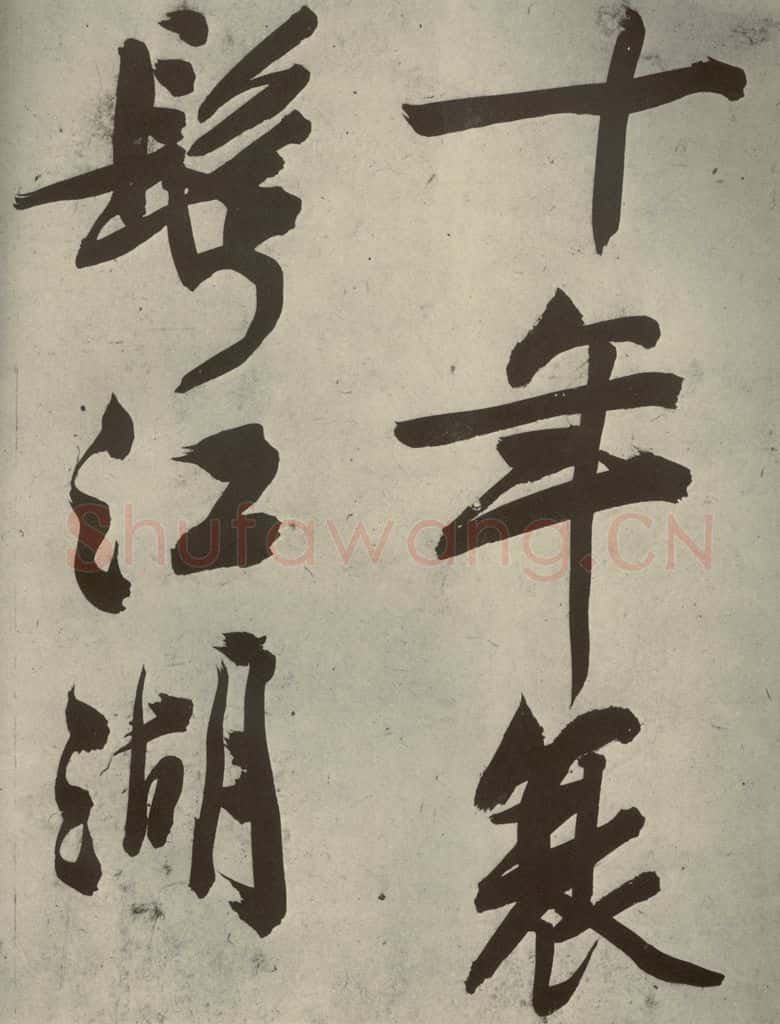 十年衰
鬢江湖
Shufawang.CN